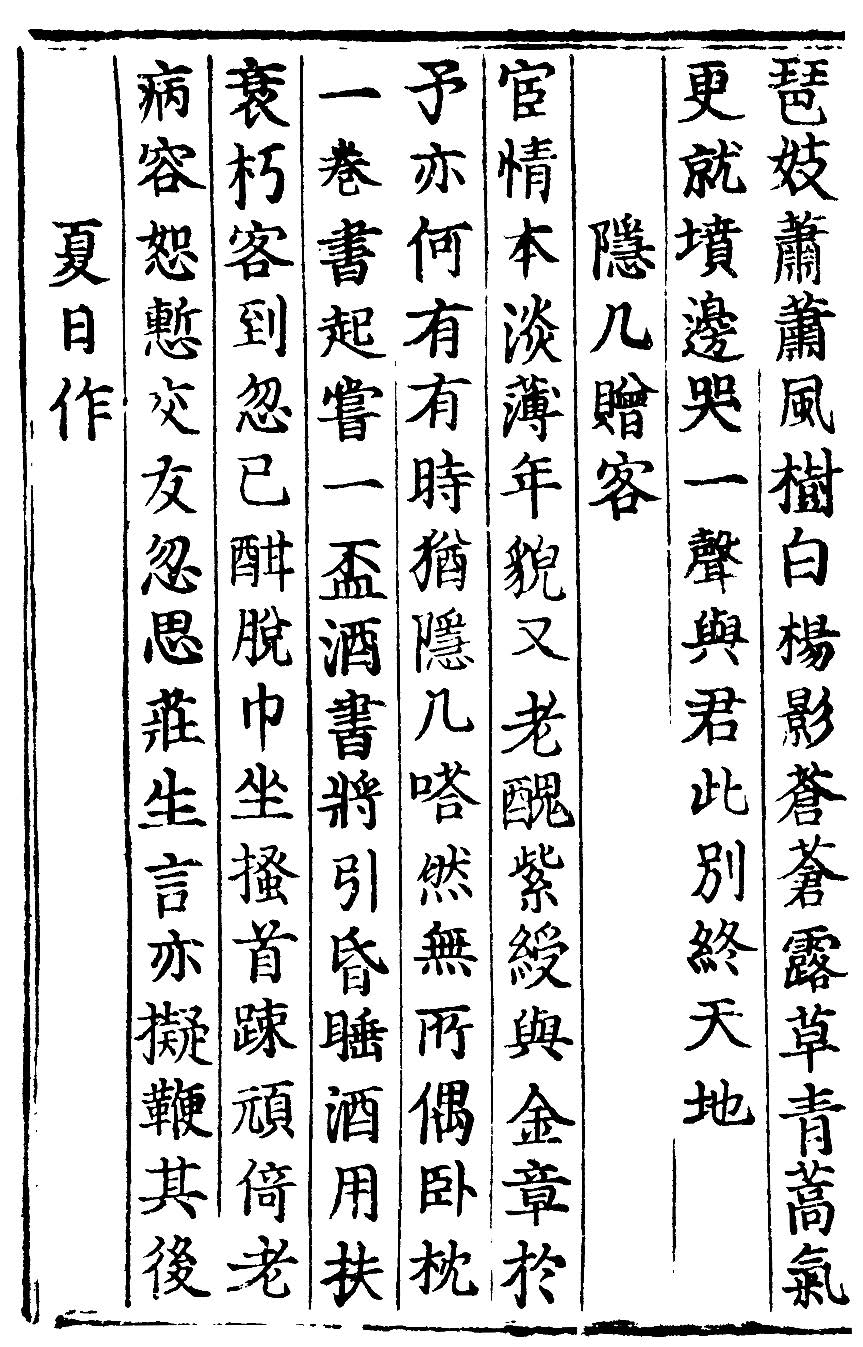 琶妓蕭蕭風樹白楊影蒼蒼露草青蒿氣
更就墳邊哭一聲與君此別終天地
隱几贈客
宦情本淡薄年貌又老醜紫綬與金章於
予亦何有有時猶隱几嗒然無所偶卧枕
一巻書起嘗一盃酒書將引昏睡酒用扶
衰朽客到忽已酣脫巾坐搔首踈頑倚老
病容恕慙交友忽思莊生言亦擬鞭其後
夏日作